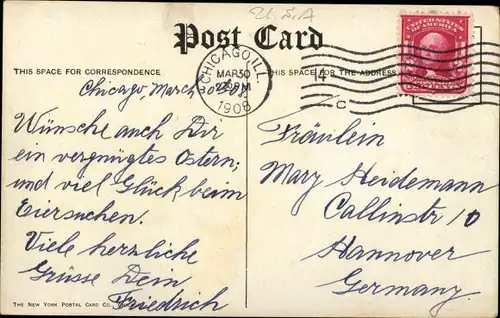 U.S.A
Post Card
THIS SPACE FOR CORRESPONDENCE
THIS SPACE FOR THE ADDRESS
CHICAGO, ILL.
MAR 30
1908
UNITED STATES
OF AMERICA
Chicago, March
Wünsche auch Dir
ein vergnügtes Ostern;
und viel Glück beim
Eiersuchen.
Viele herzliche
Grüsse Dein
Friedrich
Fräulein
Mary Heidemann
Callinstr 10
Hannover
Germany.
THE NEW YORK POSTAL CARD CO.